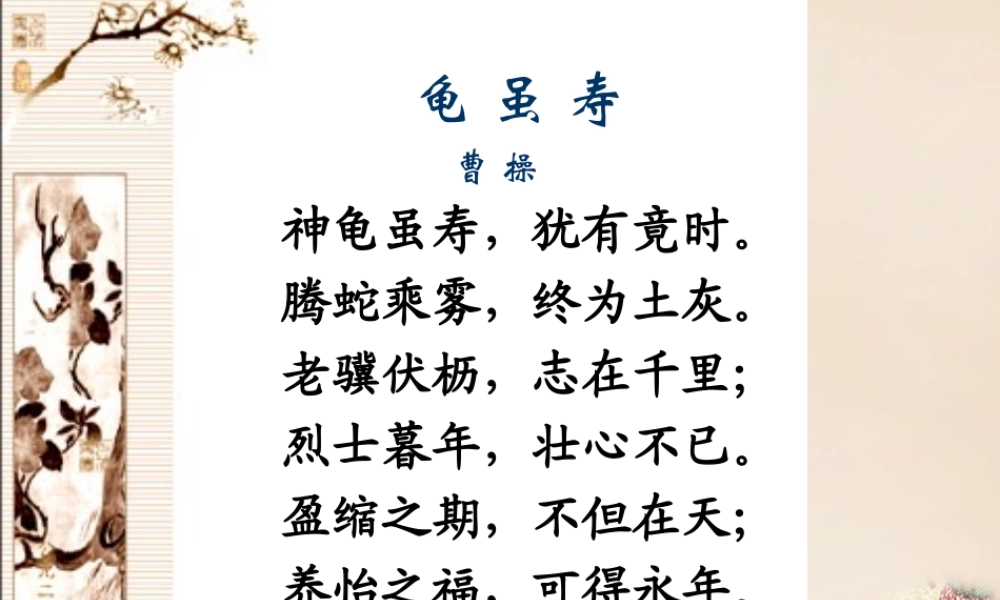 龟虽寿
曹操
神龟虽寿，犹有竟时。
腾蛇乘雾，终为土灰。
老骥伏枥，志在千里；
烈士暮年，壮心不已。
盈缩之期，不但在天；
养怡之福，可得永年。